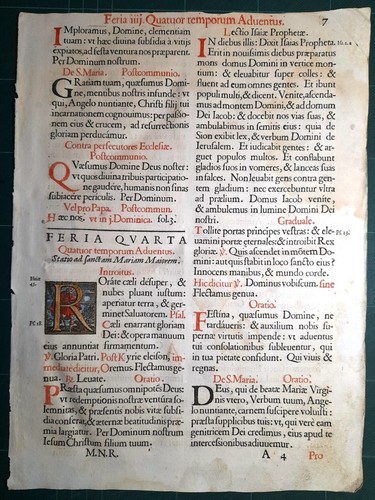 Feria iiij. Quatuor temporum Aduentus. 7
Imploramus, Domine, clementiam
tuam: vt hæc diuina subsidia à vitijs
expiatos, ad festa ventura nos præparent.
Per Dominum nostrum.
De S. Maria. Postcommunio.
Gratiam tuam, quæsumus Domi-
ne, mentibus nostris infunde: vt
qui, Angelo nuntiante, Christi filij tui
incarnationem cognouimus: per passio-
nem eius & crucem, ad resurrectionis
gloriam perducamur.
Contra persecutores Ecclesiæ.
Postcommunio.
Quæsumus Domine Deus noster:
vt quos diuina tribuis participatio-
ne gaudére, humanis non sinas
subiacére periculis. Per Dominum.
Vel pro Papa. Postcommun.
Hæc nos, vt in j. Dominica. fol. 3.
FERIA QVARTA
Quatuor temporum Aduentus.
Statio ad sanctam Mariam Maiorem.
Introitus.
Isaiæ
45.
Roráte cæli désuper, &
nubes pluiant iustum:
aperiatur terra, & ger-
minet Saluatorem. Psal.
Psal. 18.
Cæli enarrant gloriam
Dei: & opera manuum
eius annuntiat firmamentum.
℣. Gloria Patri. Post Kyrie eleison, im-
mediatè dicitur, Oremus. Flectamus ge-
nua. ℟. Leuate. Oratio.
Præsta quæsumus omnipotes Deus:
vt redemptionis nostræ ventura so-
lemnitas, & præsentis nobis vitæ subsi-
dia conferat, & æternæ beatitudinis præ-
mia largiatur. Per Dominum nostrum
Iesum Christum filium tuum.
M.N.R.
Lectio Isaiæ Prophetæ.
In diebus illis: Dixit Isaias Propheta.
Isa. 2. a
Erit in nouissimis diebus præparatus
mons domus Domini in vertice mon-
tium: & eleuabitur super colles: &
fluent ad eum omnes gentes. Et ibunt
populi multi, & dicent. Venite, ascenda-
mus ad montem Domini, & ad domum
Dei Iacob: & docebit nos vias suas, &
ambulabimus in semitis eius: quia de
Sion exibit lex, & verbum Domini de
Ierusalem. Et iudicabit gentes: & ar-
guet populos multos. Et conflabunt
gladios suos in vomeres, & lanceas suas
in falces. Non leuabit gens contra gen-
tem gladium: nec exercebuntur vltra
ad prælium. Domus Iacob venite,
& ambulemus in lumine Domini Dei
nostri. Graduale.
Tollite portas principes vestras: & ele-
uamini portæ æternales: & introibit Rex
gloriæ. ℣. Quis ascendet in mōtem Do-
mini: aut quis stabit in loco sancto eius?
Innocens manibus, & mundo corde.
Hic dicitur ℣. Dominus vobiscum. sine
Flectamus genua.
Oratio.
Festina, quæsumus Domine, ne
tardáueris: & auxilium nobis su-
pernæ virtutis impende: vt aduentus
tui consolationibus subleuentur, qui
in tua pietate confidunt. Qui viuis &
regnas.
De S. Maria. Oratio.
Deus, qui de beatæ Mariæ Virgi-
nis vtero, Verbum tuum, Ange-
lo nuntiante, carnem suscipere voluisti:
præsta supplicibus tuis: vt, qui verè eam
genitricem Dei credimus, eius apud te
intercessionibus adiuuemur.
A 4 Pro